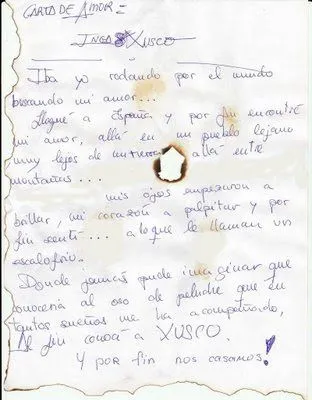 CARTA DE AMOR:
INGA XUSCO
Iba yo rodando por el mundo
buscando mi amor...
Llegué a España y por fin encontré
mi amor, allá en un pueblo lejano
muy lejos de mi allá entre
montañas...
mis ojos empezaron a
brillar, mi corazón a palpitar y por
fin sentí... a lo que le llaman un
escalofrío.
Donde jamás pude imaginar que
conocería al oso de peluche que en
tantos sueños me ha acompañado,
Al fin conocí a XUSCO.
Y por fin nos casamos!